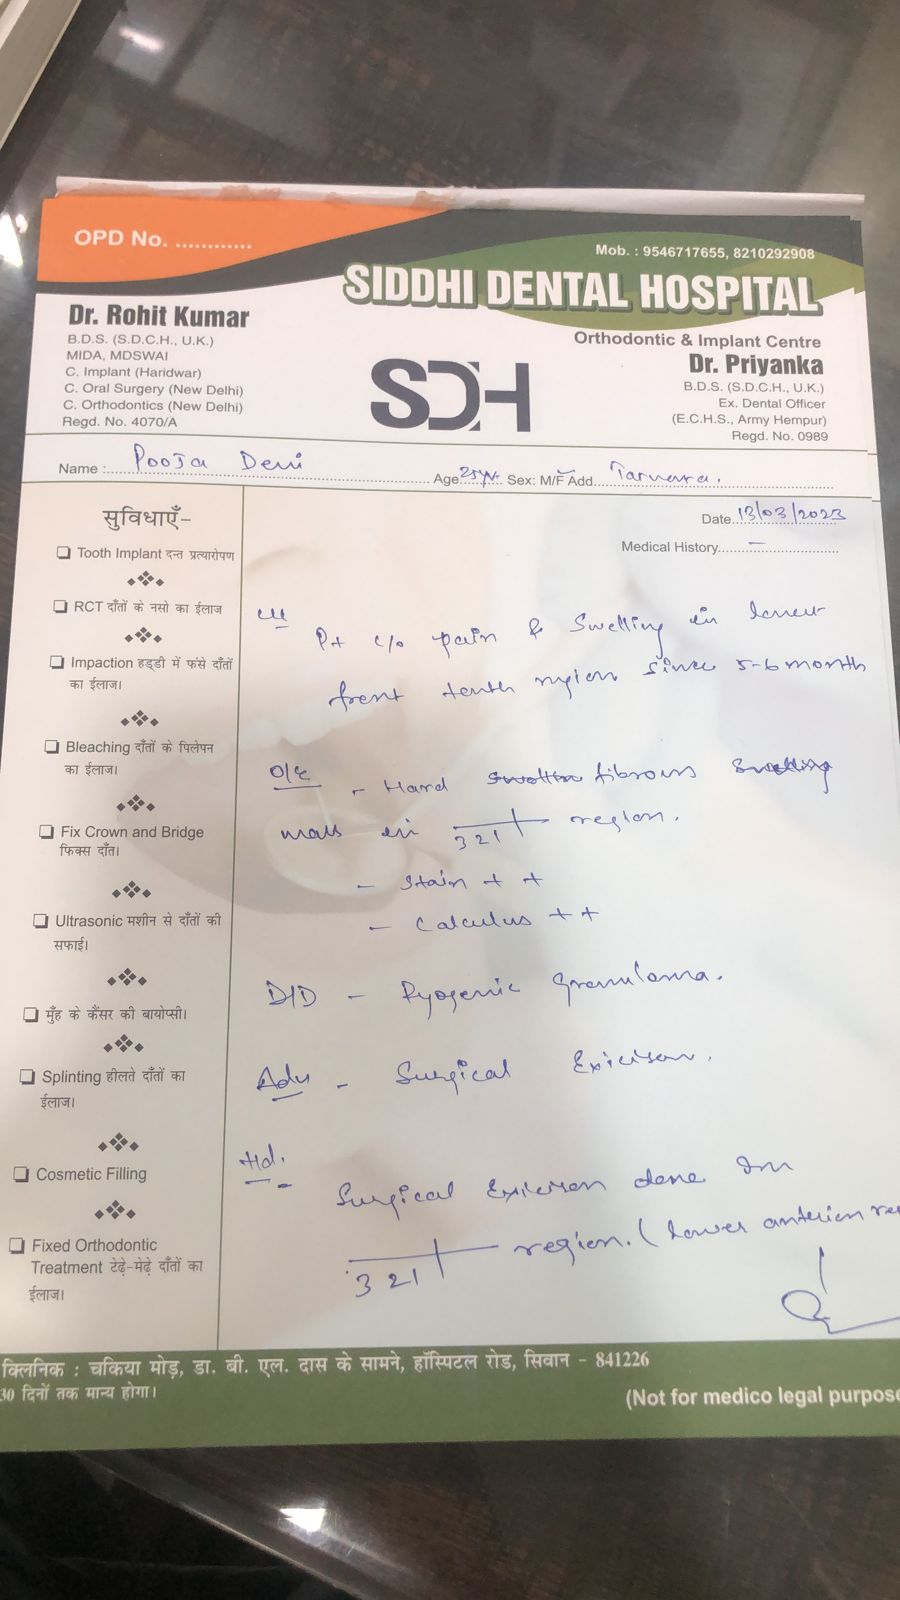 OPD No. ............
Mob. : 9546717655, 8210292908
SIDDHI DENTAL HOSPITAL
Orthodontic & Implant Centre
Dr. Rohit Kumar
B.D.S. (S.D.C.H., U.K.)
MIDA, MDSWAI
C. Implant (Haridwar)
C. Oral Surgery (New Delhi)
C. Orthodontics (New Delhi)
Regd. No. 4070/A
SDH
Dr. Priyanka
B.D.S. (S.D.C.H., U.K.)
Ex. Dental Officer
(E.C.H.S., Army Hempur)
Regd. No. 0989
Name :.. Pooja Devi Age 25yr Sex: M/F Add. Tarwara.
Date 13/03/2023
Medical History.. –
सुविधाएँ-
Tooth Implant दन्त प्रत्यारोपण
RCT दाँतों के नसो का ईलाज
Impaction हड्डी में फंसे दाँतों
का ईलाज।
Bleaching दाँतों के पिलेपन
का ईलाज।
Fix Crown and Bridge
फिक्स दाँत।
Ultrasonic मशीन से दाँतों की
सफाई।
मुँह के कैंसर की बायोप्सी।
Splinting हीलते दाँतों का
ईलाज।
Cosmetic Filling
Fixed Orthodontic
Treatment टेढ़े-मेढ़े दाँतों का
ईलाज।
Pt c/o pain & Swelling in lower
front teeth region since 5-6 month
O/E - Hard fibrous
mass in 321 region.
- Stain + +
- Calculus ++
D/D - Pyogenic Granuloma.
Adv - Surgical Exicison.
Surgical Exicison done Im
321 region. (lower anterior re
क्लिनिक : चकिया मोड़, डा. बी. एल. दास के सामने, हॉस्पिटल रोड, सिवान - 841226
30 दिनों तक मान्य होगा।
(Not for medico legal purpose